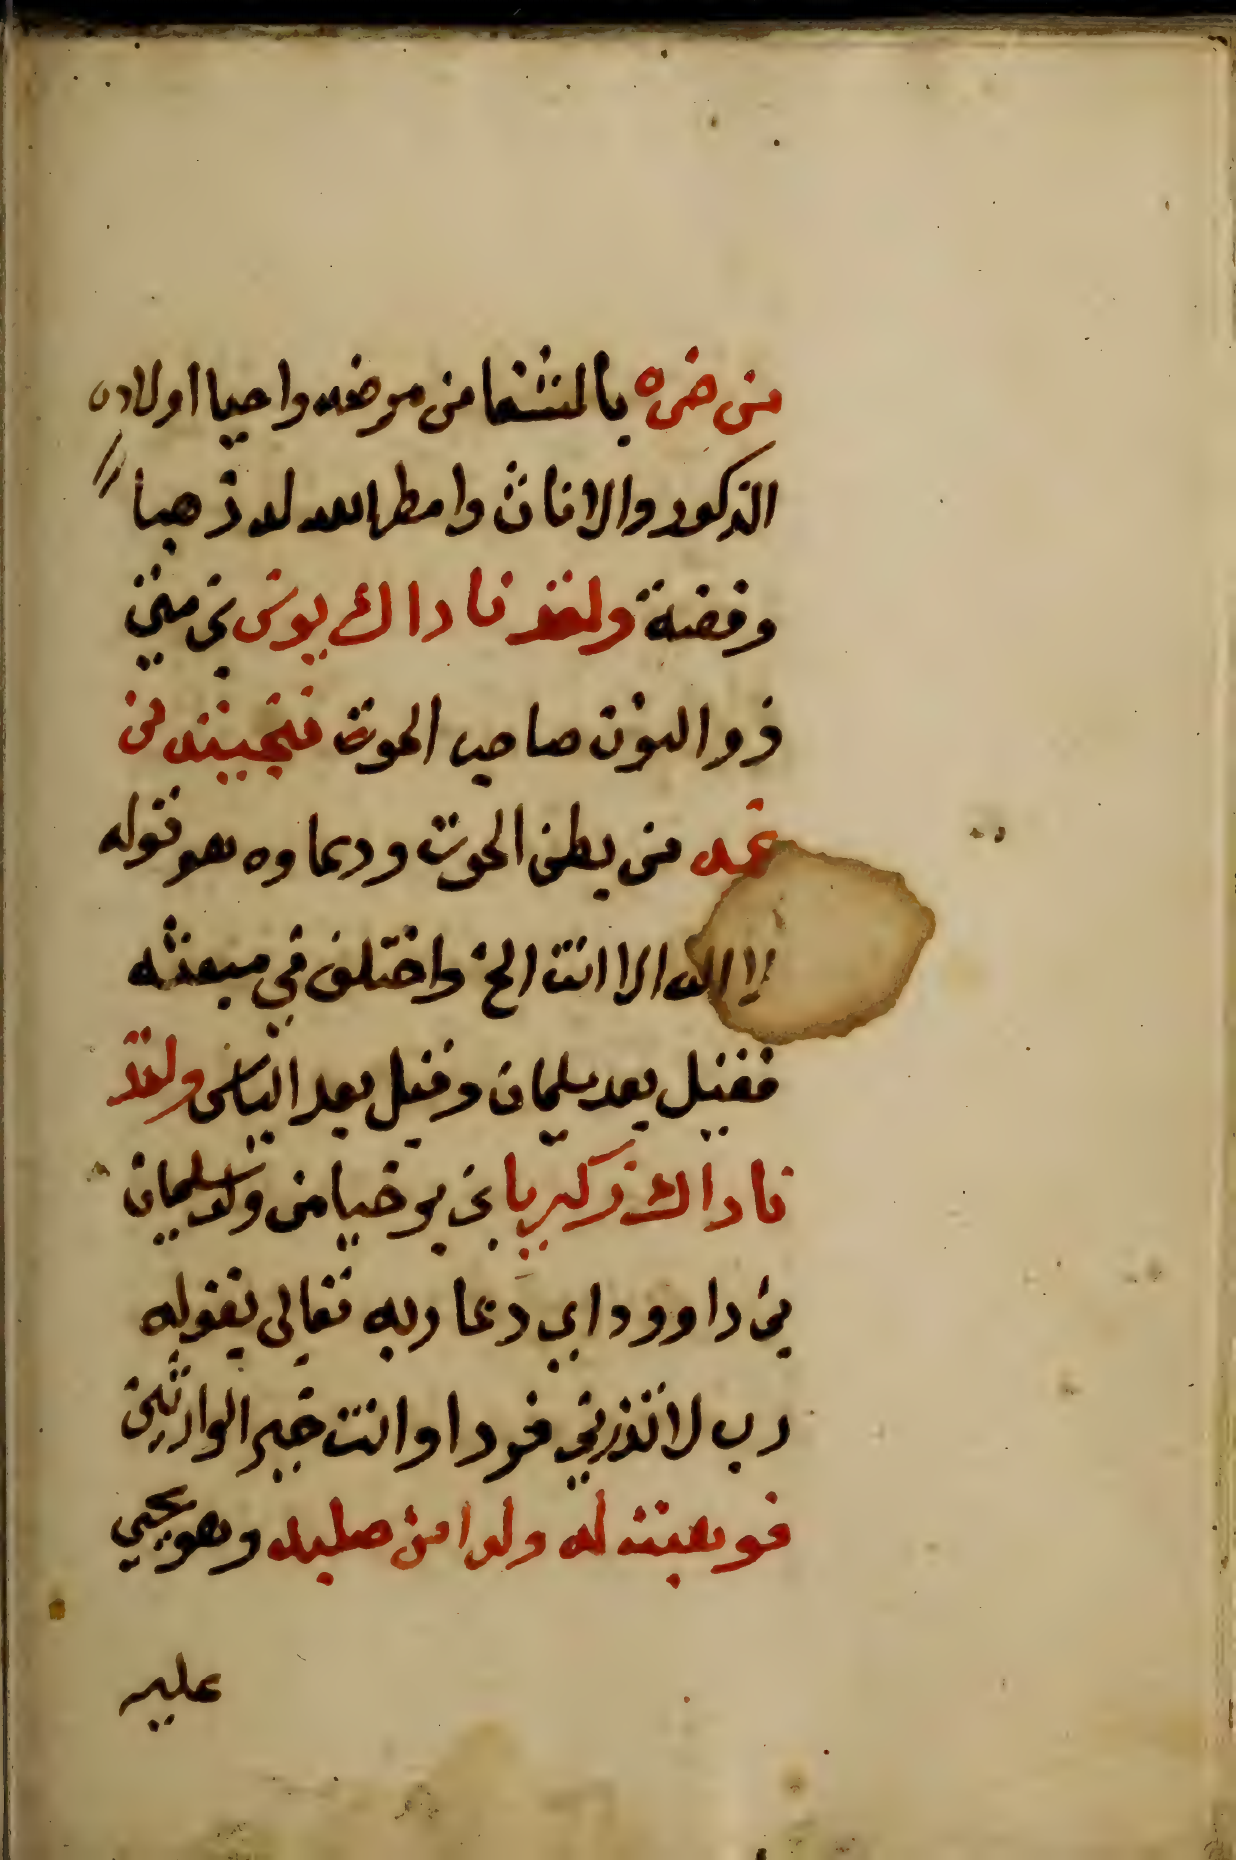 من ضره بالشفا من مرضه واحيا اولاده
الذكور والاناث وامطر الله له ذهبا
وفضة ولقد ناداك يونس بن متي
ذو النون صاحب الحوت فنجيته من
غمه من بطن الحوت ودعاوه هو قوله
لا اله الا انت الخ واختلف في مبعثه
فقيل بعد سليمان وقيل بعد الياس ولقد
ناداك زكريا بن يوخيا من ولد سليمان
بن داوود اي دعا ربه تعالى بقوله
رب لا تذرني فردا وانت خير الوارثين
فوهبت له ولدا من صلبه وهو يحيي
عليه